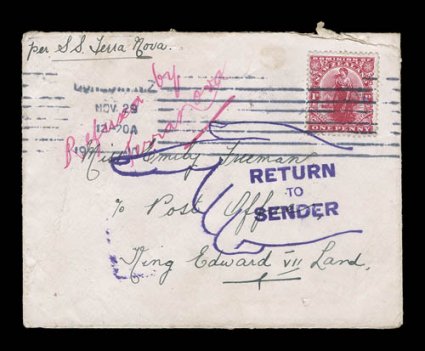 per S.S. Terra Nova.
NOV 29
12-20A
Return by
Terra Nova
ONE PENNY
Miss Emily Freeman
RETURN
TO
SENDER
c/o Post Office,
King Edward VII Land.